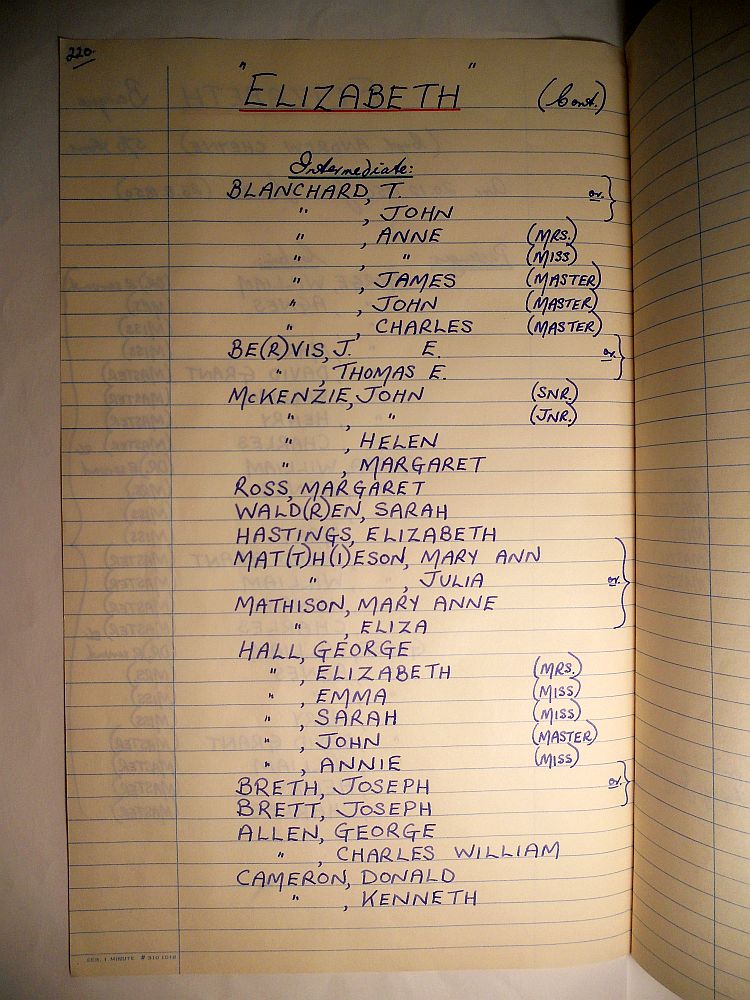 220.
"ELIZABETH" (Cont.)
Intermediate:
BLANCHARD, T. or. }
" , JOHN
" , ANNE (MRS.)
" , " (MISS)
" , JAMES (MASTER)
" , JOHN (MASTER)
" , CHARLES (MASTER)
BE(R)VIS, J. E. or. }
" , THOMAS E.
McKENZIE, JOHN (SNR.)
" , " (JNR.)
" , HELEN
" , MARGARET
ROSS, MARGARET
WALD(R)EN, SARAH
HASTINGS, ELIZABETH
MAT(T)H(I)ESON, MARY ANN
" , JULIA or. }
MATHISON, MARY ANNE
" , ELIZA
HALL, GEORGE
" , ELIZABETH (MRS.)
" , EMMA (MISS)
" , SARAH (MISS)
" , JOHN (MASTER)
" , ANNIE (MISS)
BRETH, JOSEPH or. }
BRETT, JOSEPH
ALLEN, GEORGE
" , CHARLES WILLIAM
CAMERON, DONALD
" , KENNETH